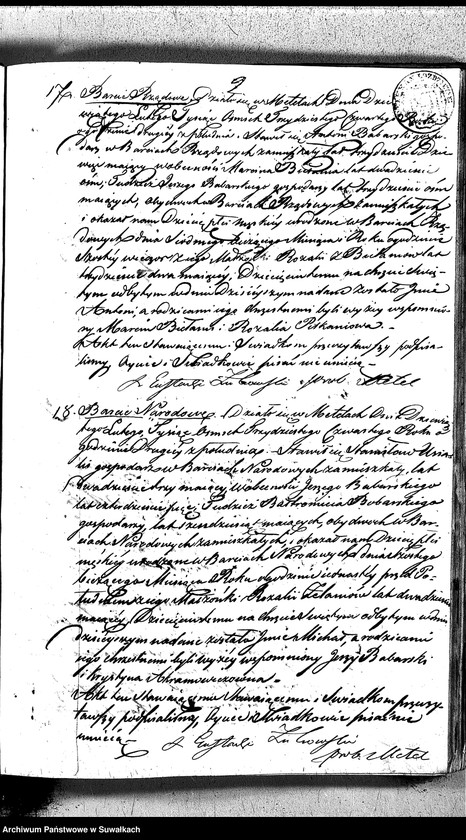 2
17. Barcie Rządowe. Działo się w Metelach Dnia Dzie
wiątego Lutego Tysiąc Ośmset Trzydziestego Czwartego Roku
o godzinie drugiey z południa. Stawił się Antoni Babarski gospo
darz w Barciach Rządowych zamieszkały lat trzydzieści Dzie
więć maiący w obecności Marcina lat dwadzieścia
ośm, tudzież Jerzego Babarskiego gospodarzy lat trzydzieści ośm
maiących, obydwóch w Barciach Rządowych zamieszkałych
i okazał nam Dziecię płci męskiey urodzone w Barciach Rzą
dowych dnia Siódmego bieżącego Miesiąca i Roku o godzinie
szóstey wieczór z iego Małżonki Rozalii z lat
trzydzieści dwa maiącey. Dziecięciu temu na Chrzcie Świę
tym odbytym w dniu dzisieyszym nadane zostało Imie
Antoni, a rodzicami iego chrzestnemi byli wyżey wspomnio
ny Marcin i Rozalia
Akt ten Stawaiącemu i Świadkom przeczytawszy podpisa
liśmy, Oyciec i Świadkowie pisać nie umieią.
X Prob. Metel
18. Barcie Narodowe. Działo się w Metelach Dnia Dziewią
tego Lutego Tysiąc Ośmset Trzydziestego Czwartego Roku o
godzinie Drugiey z południa. Stawił się Stanisław
gospodarz w Barciach Narodowych zamieszkały, lat
dwadzieścia trzy maiący w obecności Jerzego Babarskiego
lat czterdzieści, tudzież Bartłomieja Babarskiego
gospodarzy, lat maiących, obydwóch w Bar
ciach Narodowych zamieszkałych, i okazał nam Dziecię płci
męskiey urodzone w Barciach Narodowych dnia szóstego
bieżącego Miesiąca i Roku o godzinie iedenastey przed Po
łudniem z iego Małżonki Rozalii lat dwadzieścia
maiącey, Dziecięciu temu na Chrzcie Świętym odbytym w dniu
dzisieyszym nadane zostało Imie Michał, a rodzicami
iego chrzestnemi byli wyżey wspomniony Jerzy Babarski
i Krystyna Abramowiczowna.
Akt ten Stawaiącemu i Świadkom przeczy
tawszy podpisaliśmy, Oyciec i Świadkowie pisać nie
umieią.
X prob. Metel
Archiwum Państwowe w Suwałkach